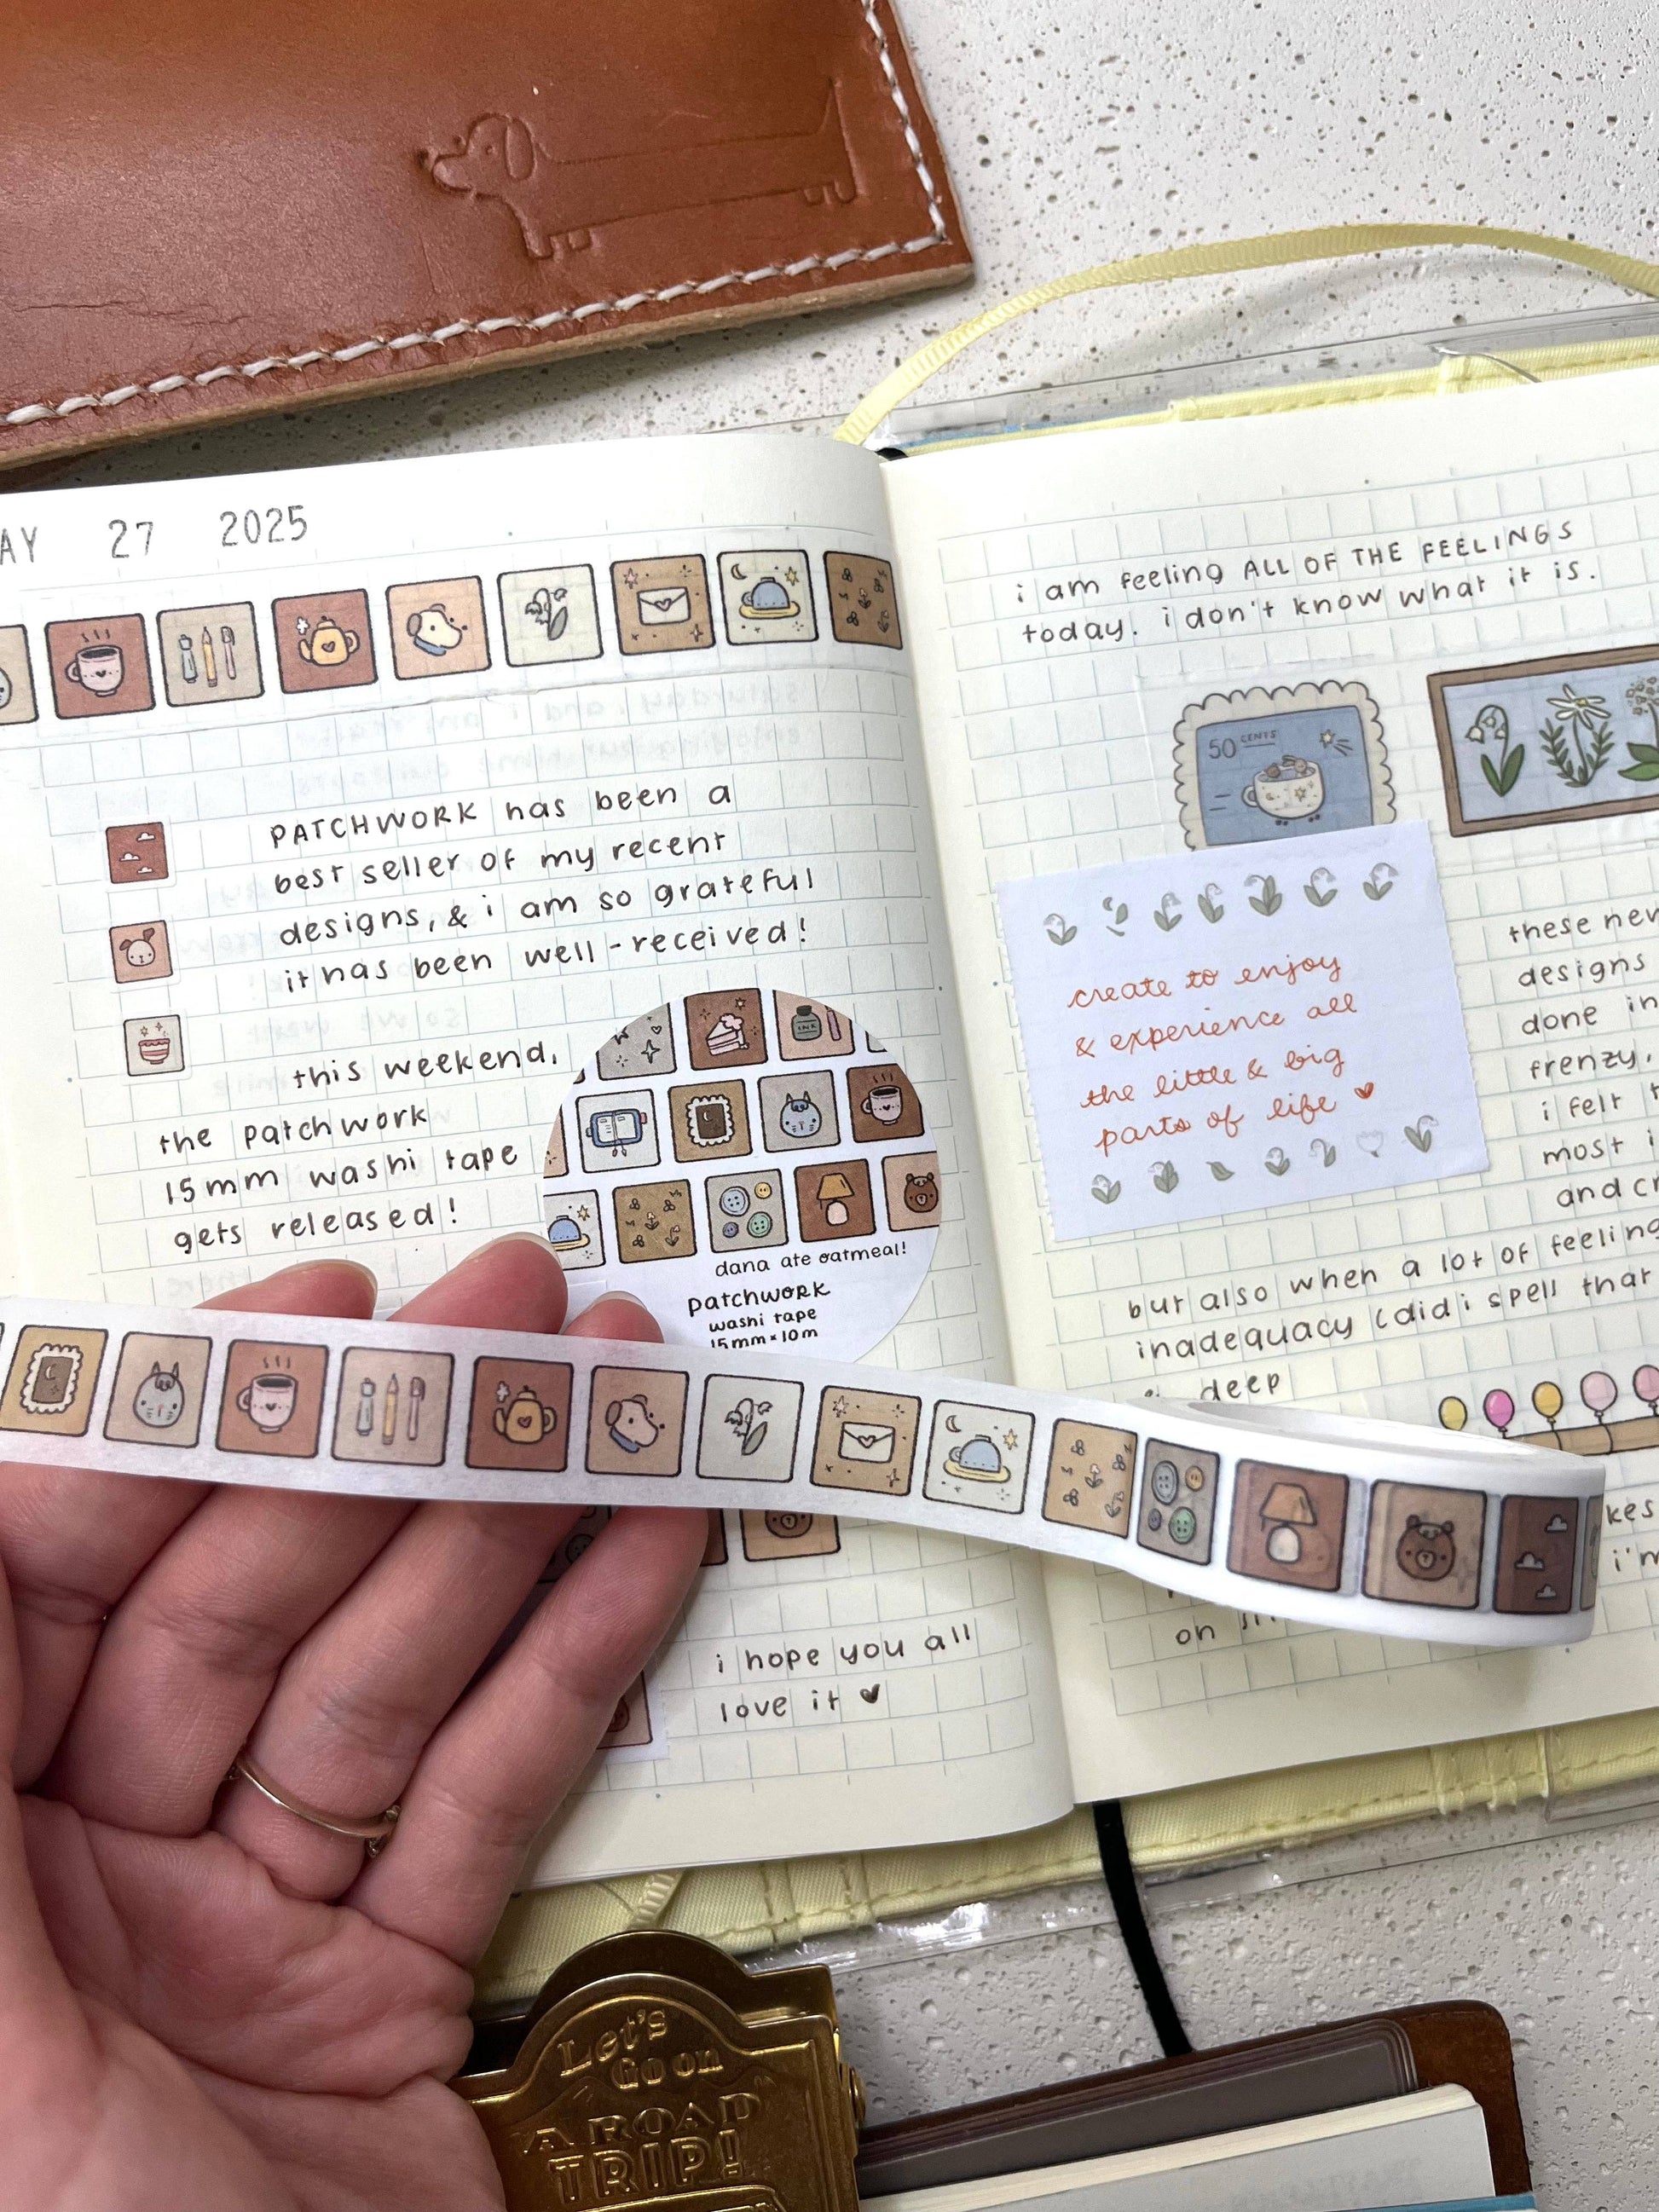 27 2025
PATCHWORK has been a
best seller of my recent
designs, & i am so grateful
it has been well-received!
this weekend,
the patchwork
15mm washi tape
gets released!
INK
dana ate oatmeal!
patchwork
washi tape
15mm×10m
i hope you all
love it
i am feeling ALL OF THE FEELINGS
today. i don't know what it is.
50 CENTS
create to enjoy
& experience all
the little & big
parts of life
these new
designs
done in
frenzy,
i felt
most
and
but also when a lot of feeling
inadequacy (did i spell that
deep
i'm
on
Let's
Go on
A ROAD
TRIP!